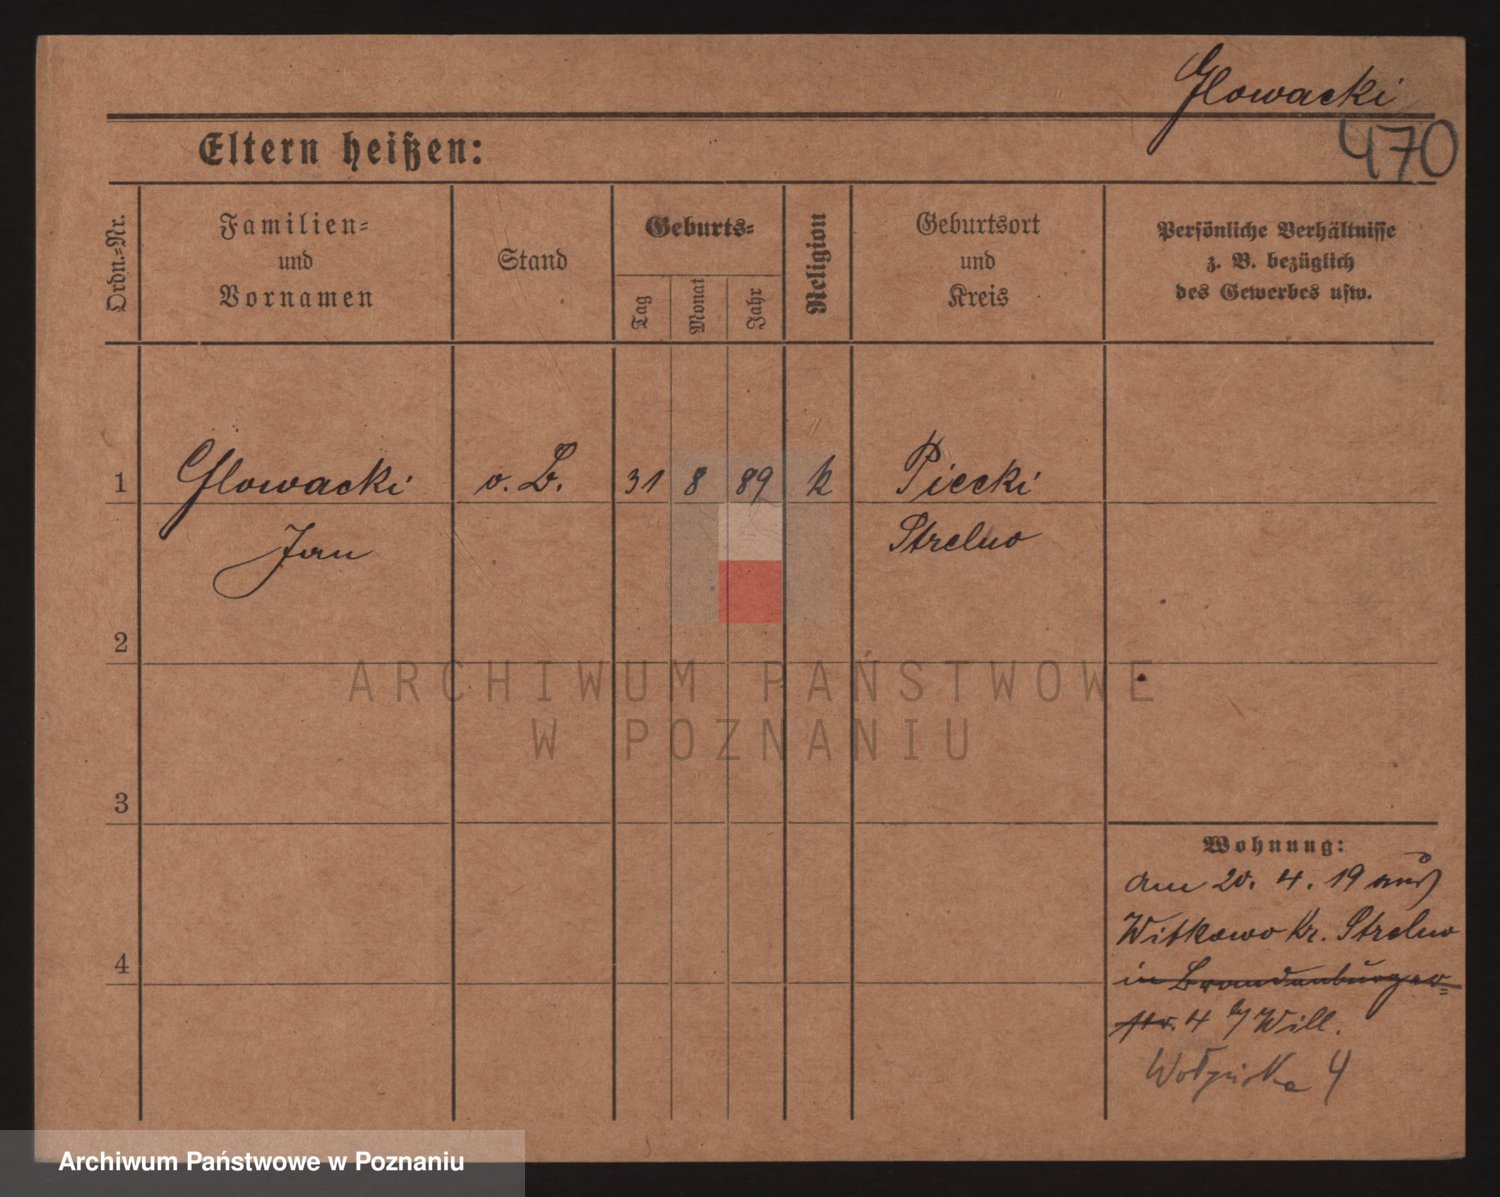 Glowacki
470
Eltern heißen:
Ordn.-Nr.
Familien-
und
Vornamen
Stand
Geburts-
Tag
Monat
Jahr
Religion
Geburtsort
und
Kreis
Persönliche Verhältnisse
z. B. bezüglich
des Gewerbes usw.
1 Glowacki v. B. 31 8 89 k Piecki
Jan Strelno
2
ARCHIWUM PAŃSTWOWE
W POZNANIU
3
Wohnung:
am 20. 4. 19 aus
Witkowo Kr. Strelno
4
in Brandenburger-
str. 4 b/ Will.
Wołyńska 4
Archiwum Państwowe w Poznaniu